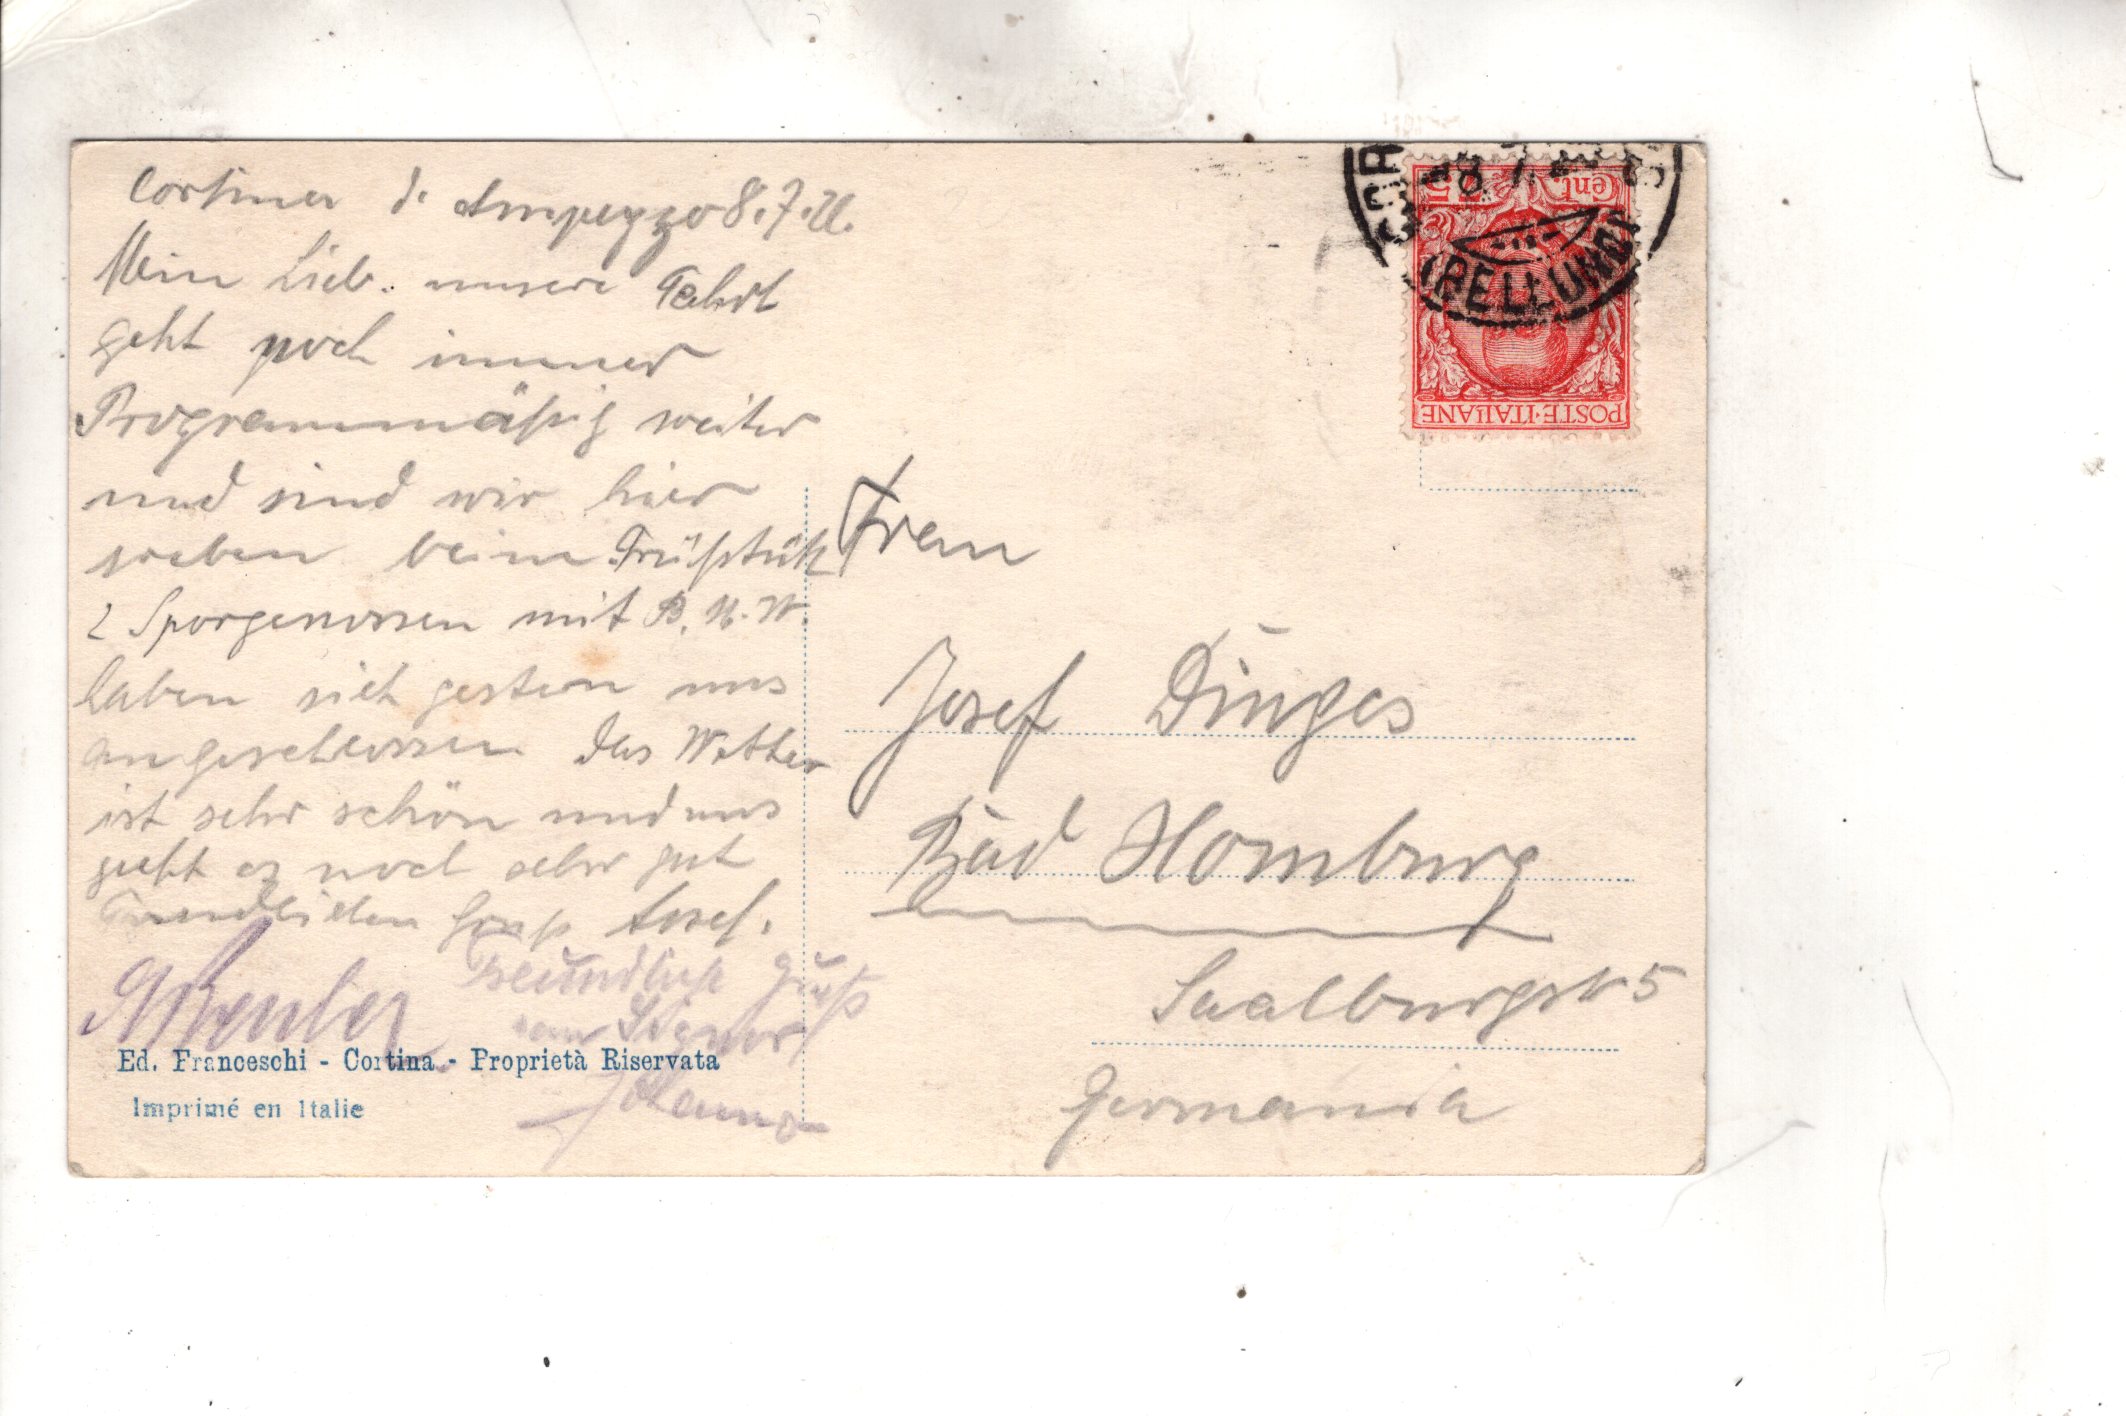 Cortina d. Ampezzo 8.7.26.
Mein Lieb. unsere Fahrt
geht noch immer
Programmäßig weiter
und sind wir hier
soeben beim Früßtük
2 Sporgenossen mit B.M.W.
haben sich gestern uns
angeschlossen das Wetter
ist sehr schön und uns
geht es noch sehr gut
Freundlichen Gruß Josef.
Freundliche Grüße
Ed. Franceschi - Cortina - Proprietà Riservata
Imprimé en Italie
Frau
Josef Dinges
Bad Homburg
Saalburgstr 5
Germania
Cent.
8 7
(BELLUNO)
POSTE·ITALIANE